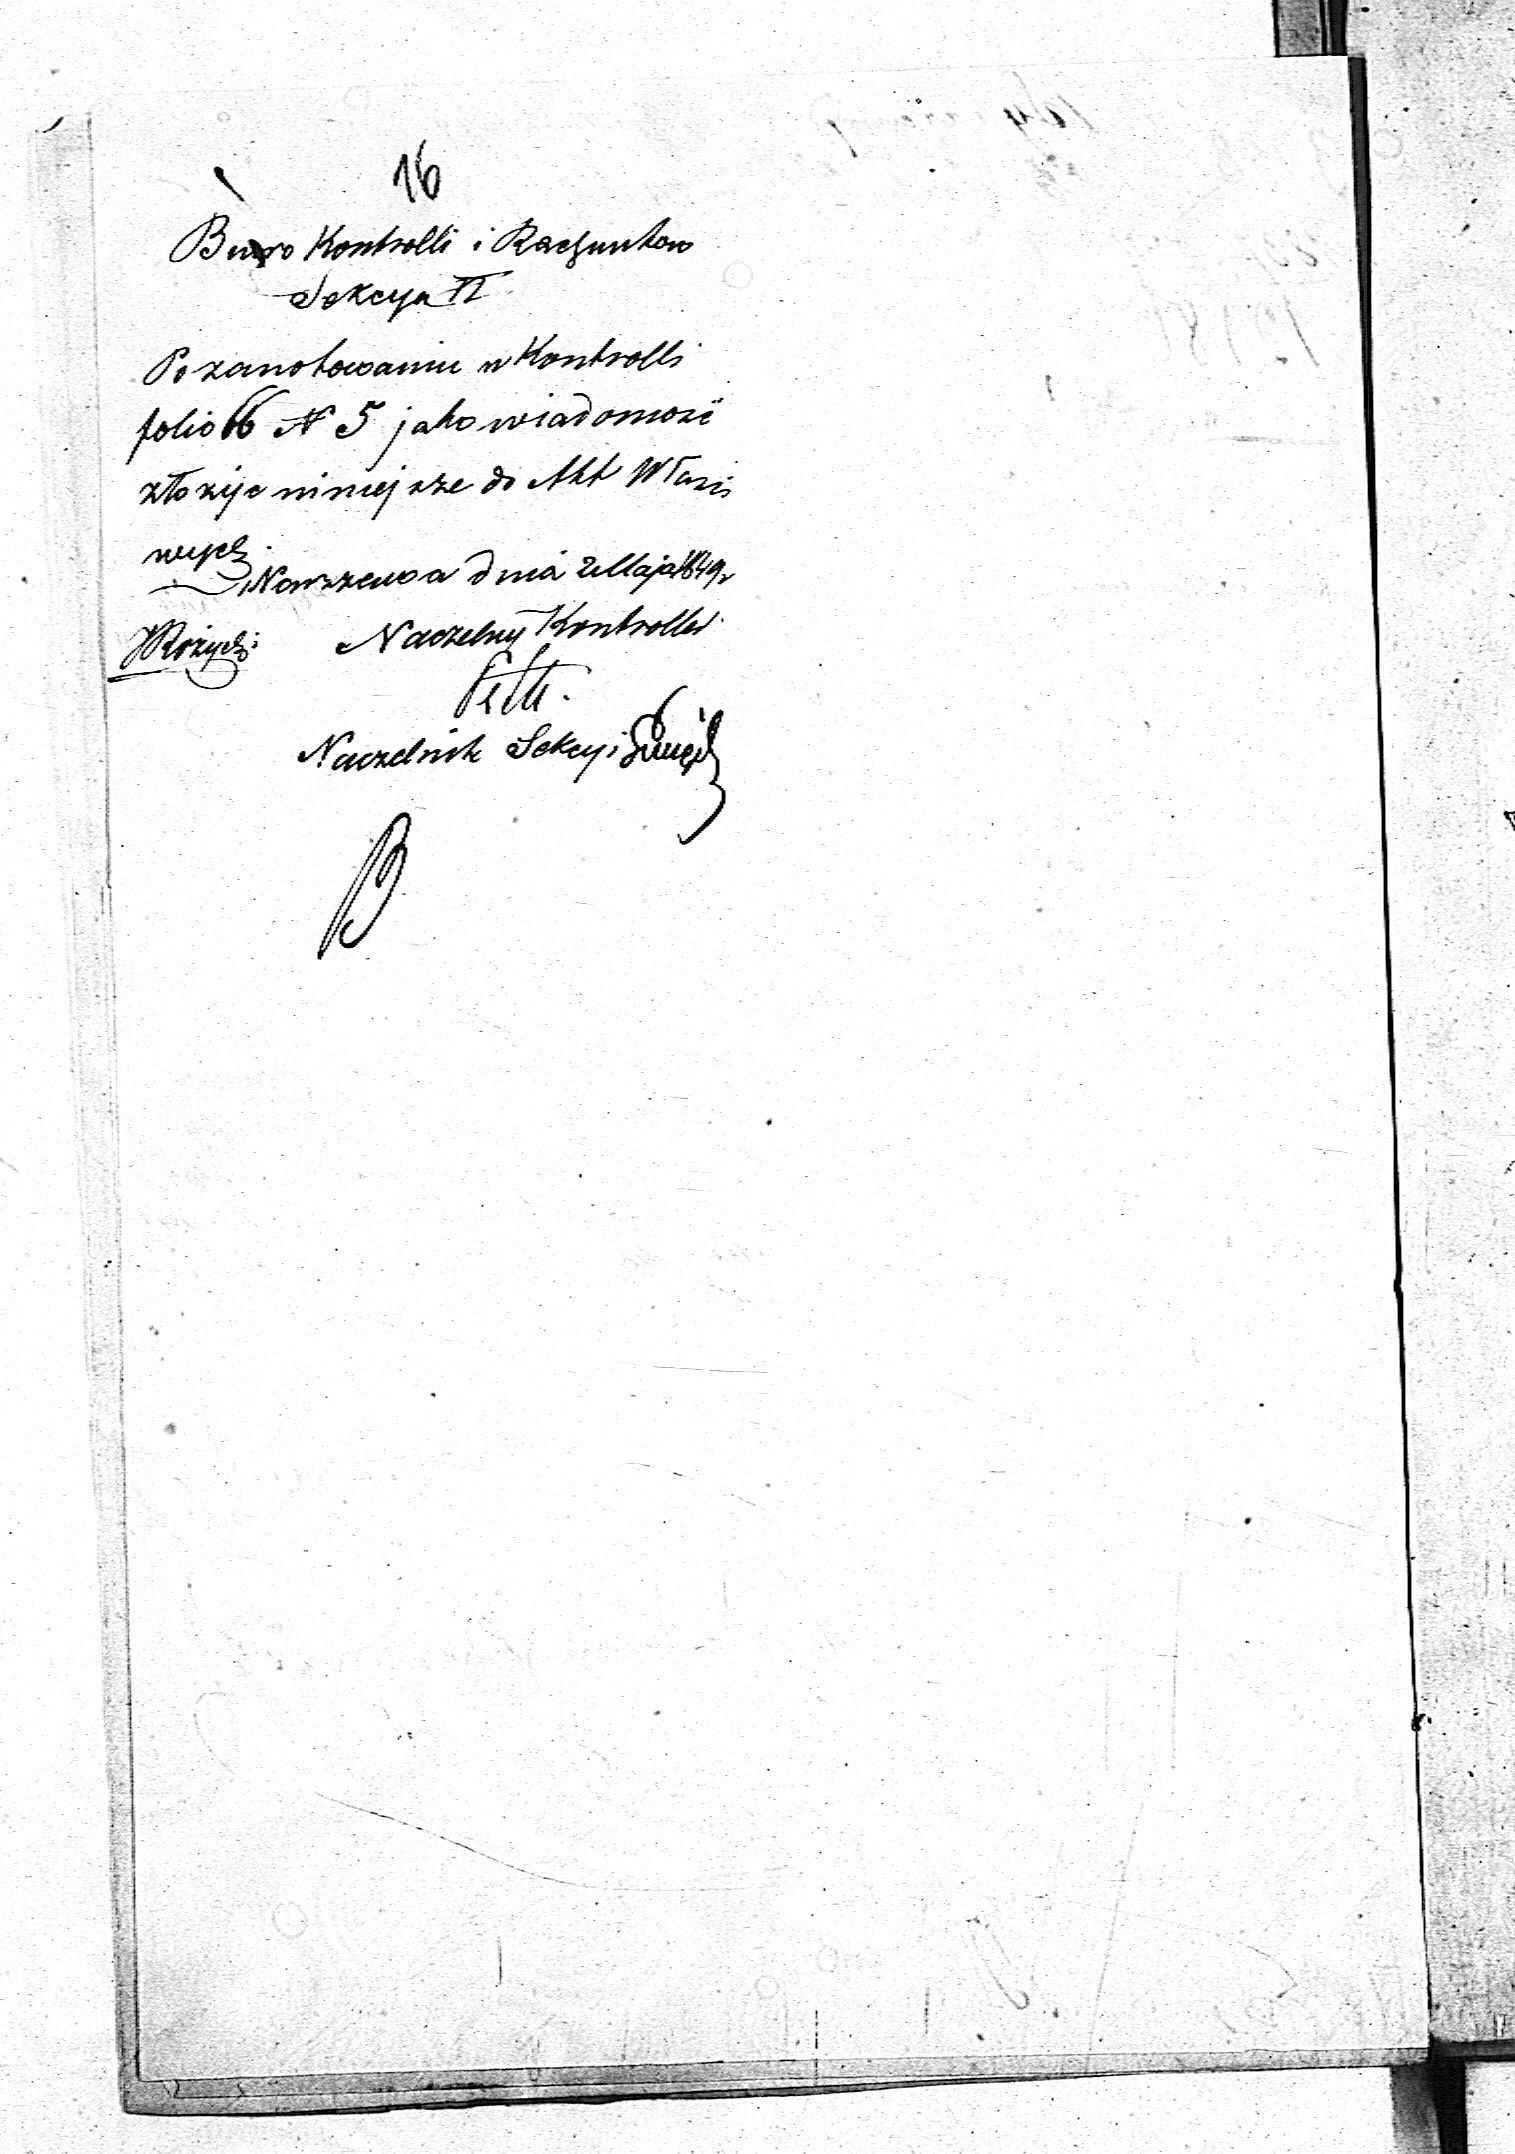 16
Biuro Kontrolli i Rachunkow
Sekcya II
Po zanotowaniu w Kontrolli
folio 66 N 5 jako wiadomość
złożyć niniejsze do Akt Właści
wych.
Warszawa dnia 2 Maja 1849 r
JRożycki Naczelny Kontroller
Naczelnik Sekcyi